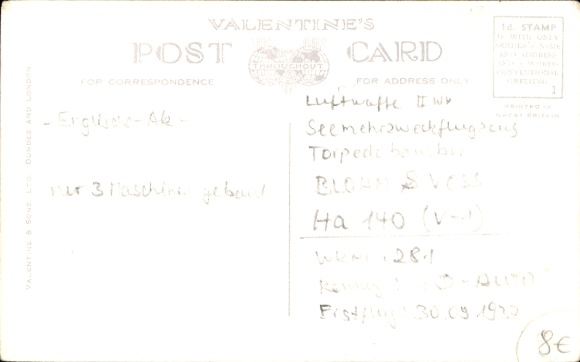 VALENTINE'S
POST CARD
THROUGHOUT
FOR CORRESPONDENCE
FOR ADDRESS ONLY
1d. STAMP
IF WITH ONLY
SENDER'S NAME
AND ADDRESS
AND 5 WORDS
CONVENTIONAL
GREETING.
1
PRINTED IN
GREAT BRITAIN
VALENTINE & SONS, LTD. DUNDEE AND LONDON
nur 3 Maschinen gebaut
Luftwaffe II WK
Seemehrzweckflugzeug
Torpedobomber
BLOHM & VOSS
Ha 140 (V-1)
WkNr.: 281
Kennung:
Erstflug: 30.09.1937
8€